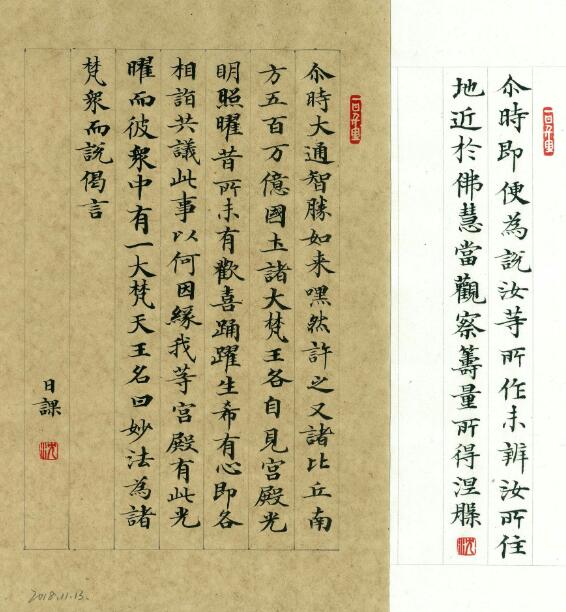 一日千里
尒時即便為說汝等所作未辨汝所住
地近於佛慧當觀察籌量所得涅槃
一日千里
尒時大通智勝如来嘿然許之又諸比丘南
方五百万億國土諸大梵王各自見宮殿光
明照曜昔所未有歡喜踊躍生希有心即各
相詣共議此事以何因緣我等宮殿有此光
曜而彼衆中有一大梵天王名曰妙法為諸
梵衆而說偈言
日課
2018.11.13.